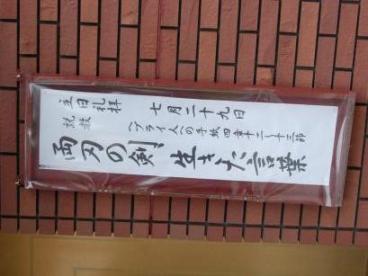 主日礼拝
説教
七月二十九日
ヘブライ人への手紙四章十二〜十三節
両刃の剣 生きた言葉